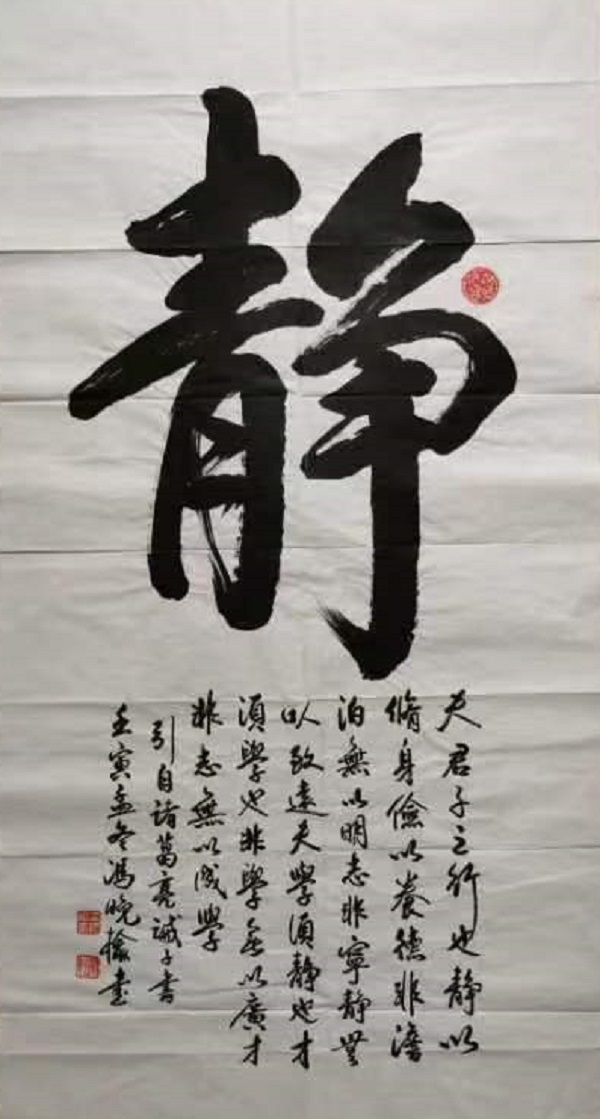 静
夫君子之行也静以
脩身儉以養德非澹
泊無以明志非寧靜無
以致遠夫學須靜也才
須學也非學無以廣才
非志無以成學
引自诸葛亮誡子書
壬寅孟冬馮晓
書